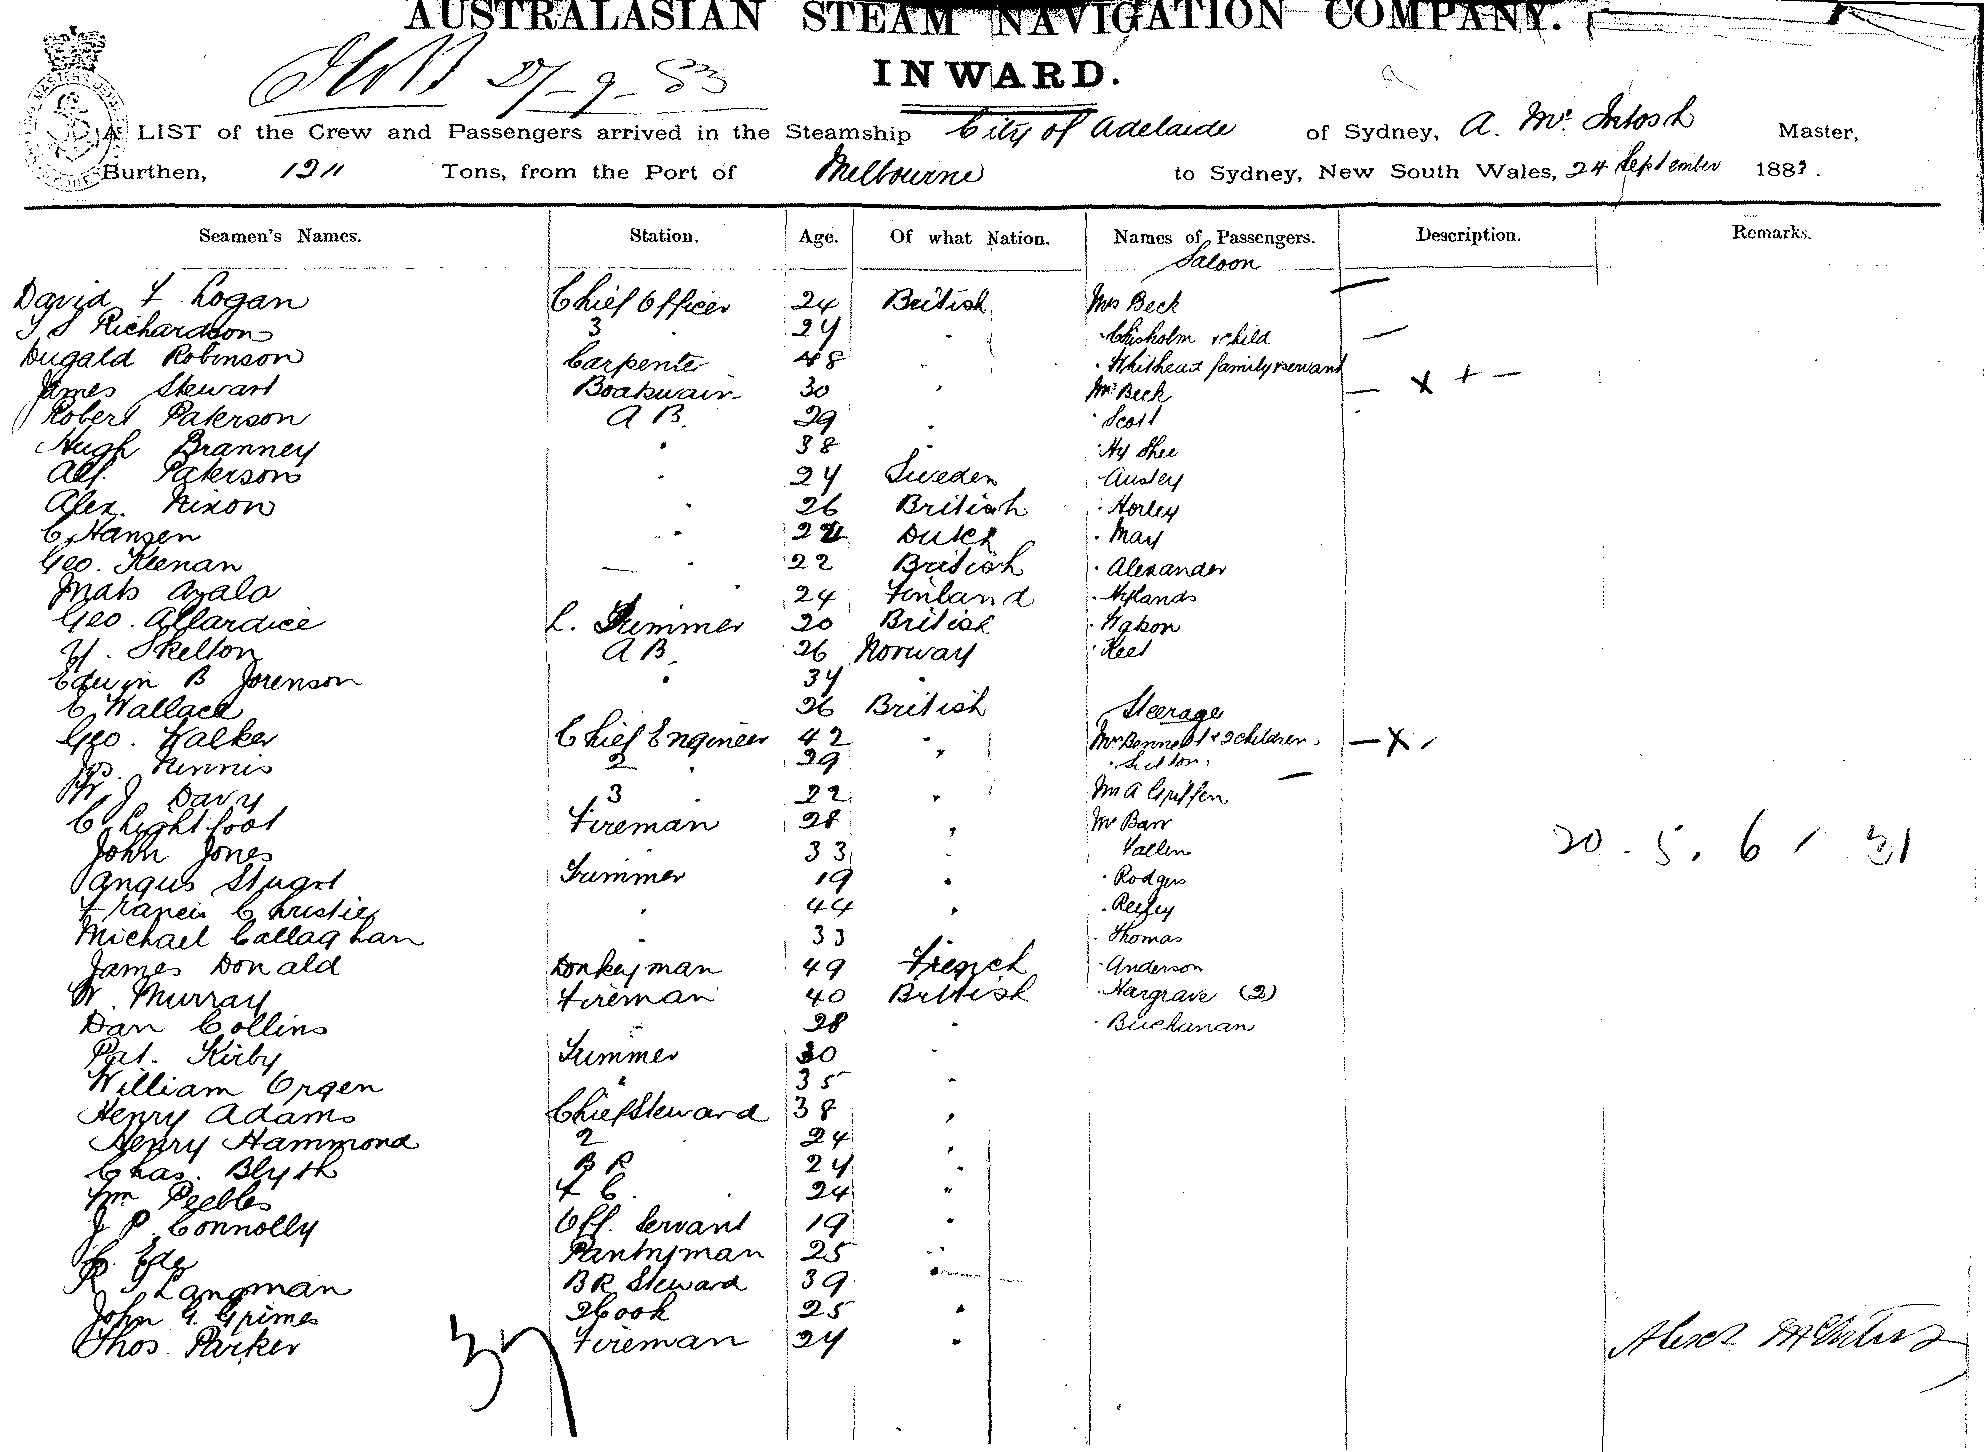 AUSTRALASIAN STEAM NAVIGATION COMPANY.
27-9-83
INWARD.
A LIST of the Crew and Passengers arrived in the Steamship City of Adelaide of Sydney, A. McIntosh Master,
Burthen, 1211 Tons, from the Port of Melbourne to Sydney, New South Wales, 24 September 1883.
Seamen's Names. Station. Age. Of what Nation. Names of Passengers. Description. Remarks.
Saloon
David F Logan Chief Officer 24 British Mrs Beck —
J S Richardson 3 " 24 " " Chisholm & child —
Dugald Robinson Carpenter 48 " " family & servant
James Stewart Boatswain 30 " Mr Beck — x + —
Robert Paterson A B. 29 " " Scott
Hugh Branney " 38 " " Hy Shee
Alf. Paterson " 24 Sweden " Austey
Alex. Nixon " 26 British " Horley
C. Hansen " 22 Dutch " May
Geo. Keenan " 22 British " Alexander
Mats " 24 Finland " Hylands
Geo. Allardice L. Trimmer 20 British " Watson
H. Skelton A B. 26 Norway " Keet
Edwin B Jorenson " 34 "
C. Wallace 26 British Steerage
Geo. Walker Chief Engineer 42 " Mrs Bennett & 2 children. — x -
Jas. Ninnis 2 " 29 "
W. J Davy 3 " 22 " Mr A Griffen
C. Lightfoot Fireman 28 " Mr Barr
John Jones 33 " Fallen 20. 5. 6 / 31
Angus Stuart Trimmer 19 " " Rodgers
Francis Christie " 44 "
Michael Callaghan " 33 " " Thomas
James Donald Donkeyman 49 French " Anderson
W. Murray Fireman 40 British " Hargrave (2)
Dan Collins " 28 " " Buchanan
Pat. Kirby Trimmer 30 "
William Orgen " 35 "
Henry Adams Chief Steward 38 "
Henry Hammond 2 " 24 "
Chas. Blyth B R 24 "
Wm Peebles F C. " 24 "
J P. Connolly Off. Servant 19 "
Ede Pantryman 25 "
R J Langman B R Steward 39 "
John G. Grimes 2 Cook 25 "
Thos. Parker Fireman 24 "
37
Alexr McIntosh